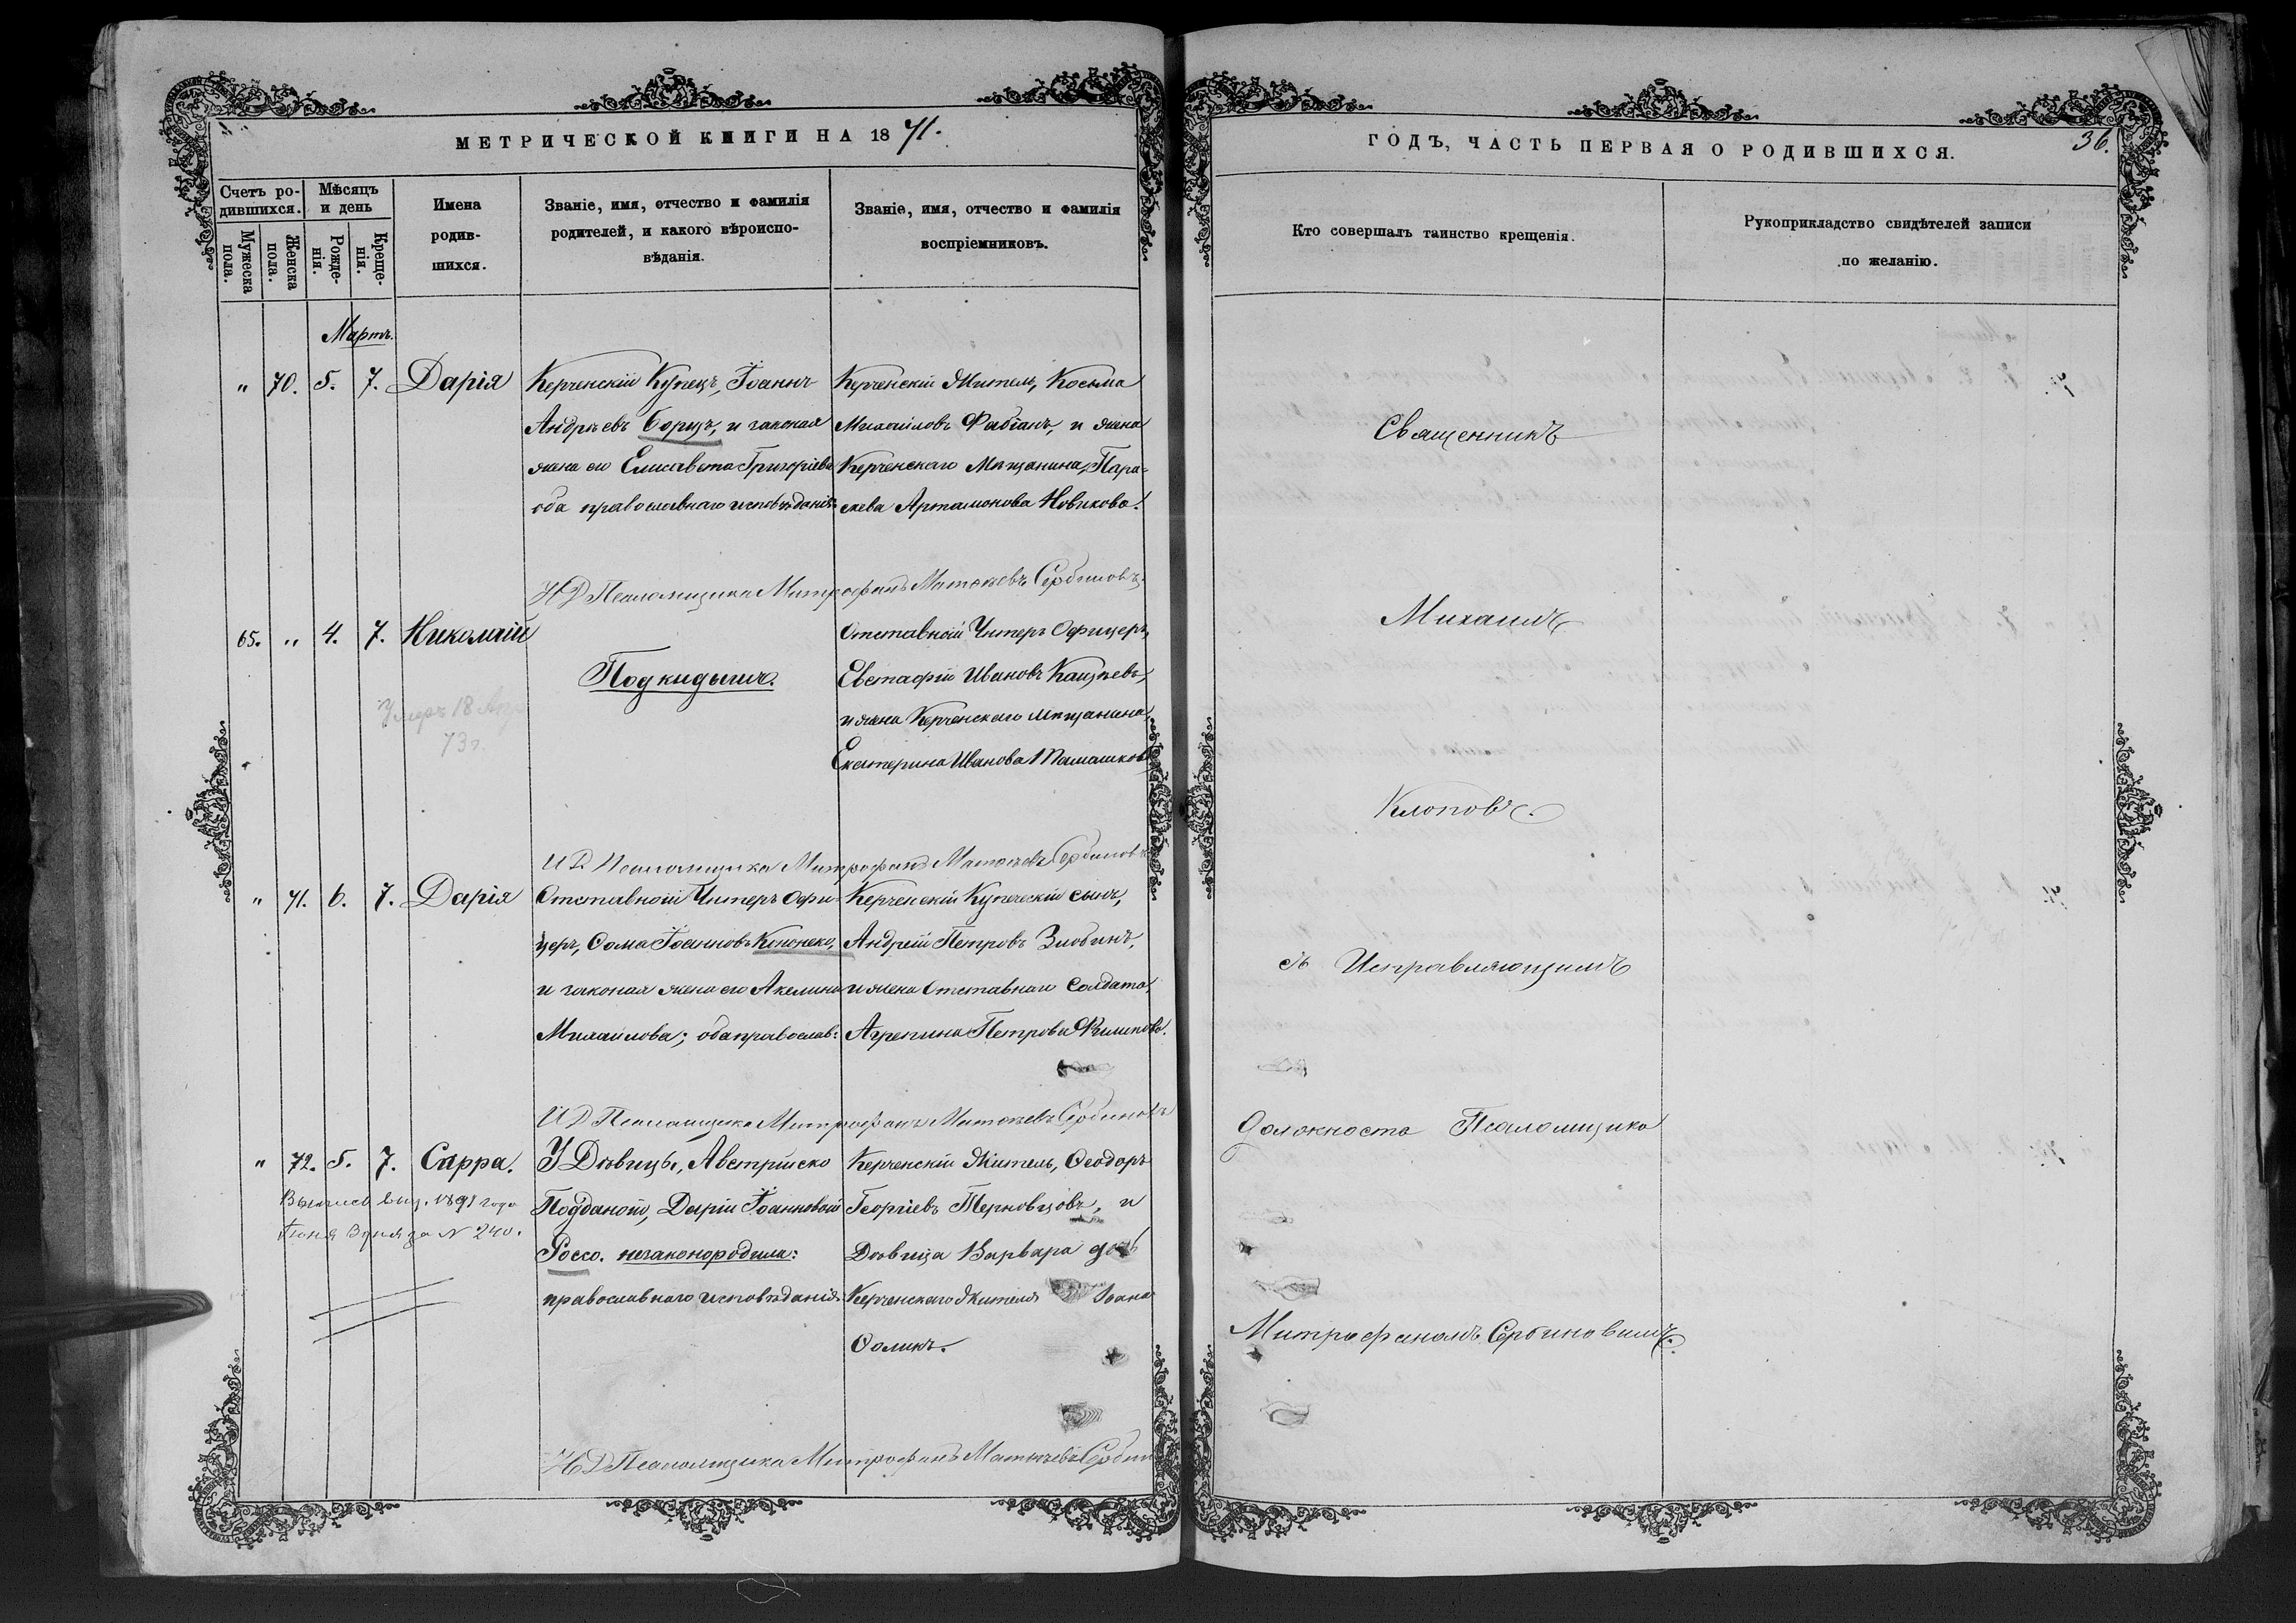 МЕТРИЧЕСКОЙ КНИГИ НА 1871.
Счетъ ро-
дившихся.
Мужеска
пола.
Женска
пола.
Мѣсяцъ
и день
Рожде-
нія.
Креще-
нія.
Имена
родив-
шихся.
Званіе, имя, отчество и фамилія
родителей, и какого вѣроиспо-
вѣданія.
Званіе, имя, отчество и фамилія
воспріемниковъ.
Мартъ.
" 70. 5. 7. Дарія
Керченскій Купецъ, Іоаннъ
Андреевъ Борщъ, и законая
жена его Елисавета Григоріева
оба православнаго исповѣданія
Керченскій Житель, Косьма
Михаиловъ Фабіанъ, и жена
Керченскаго Мѣщанина, Пара-
скева Артамонова Новикова.
И Д Псаломщика Митрофанъ Матвѣевъ Сербиновъ
65. " 4. 7. Николай
Умеръ 18 Апр
73 г.
Подкидышъ.
Отставной Унтеръ Офицеръ,
Евстафій Ивановъ
и жена Керченскаго Мѣщанина
Екатерина Иванова
И Д Псаломщика Митрофанъ Матвѣевъ Сербиновъ
" 71. 6. 7. Дарія
Отставной Унтеръ Офи-
церъ, Ѳома Іоанновъ Кононеко,
и законая жена его Акелина
Михаилова; оба православ:
Керченскій Купеческій сынъ,
Андрей Петровъ Злобинъ,
и жена Отставнаго Солдата,
Агрепина Петрова Филипова.
И Д Псаломщика Митрофанъ Матвѣевъ Сербиновъ
" 72. 5. 7. Сарра.
1891 года
№ 240.
У Дѣвицы, Австрійско
Подданой, Даріи Іоанновой
Россо. незаконородила:
православнаго исповѣданія
Керченскій Житель, Ѳеодоръ
Георгіевъ Терновцовъ, и
Дѣвица Варвара дочь
Керченскаго Жителя Іоана
Ѳомикъ.
И Д Псаломщика Митрофанъ Матвѣевъ Сербин
36.
ГОДЪ, ЧАСТЬ ПЕРВАЯ О РОДИВШИХСЯ.
Кто совершалъ таинство крещенія.
Рукоприкладство свидѣтелей записи
по желанію.
Священникъ
Михаилъ
Клоповъ.
съ Исправляющимъ
должность Псаломщика
Митрофаномъ Сербиновымъ.